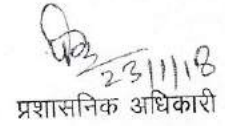 23/1/18
प्रशासनिक अधिकारी